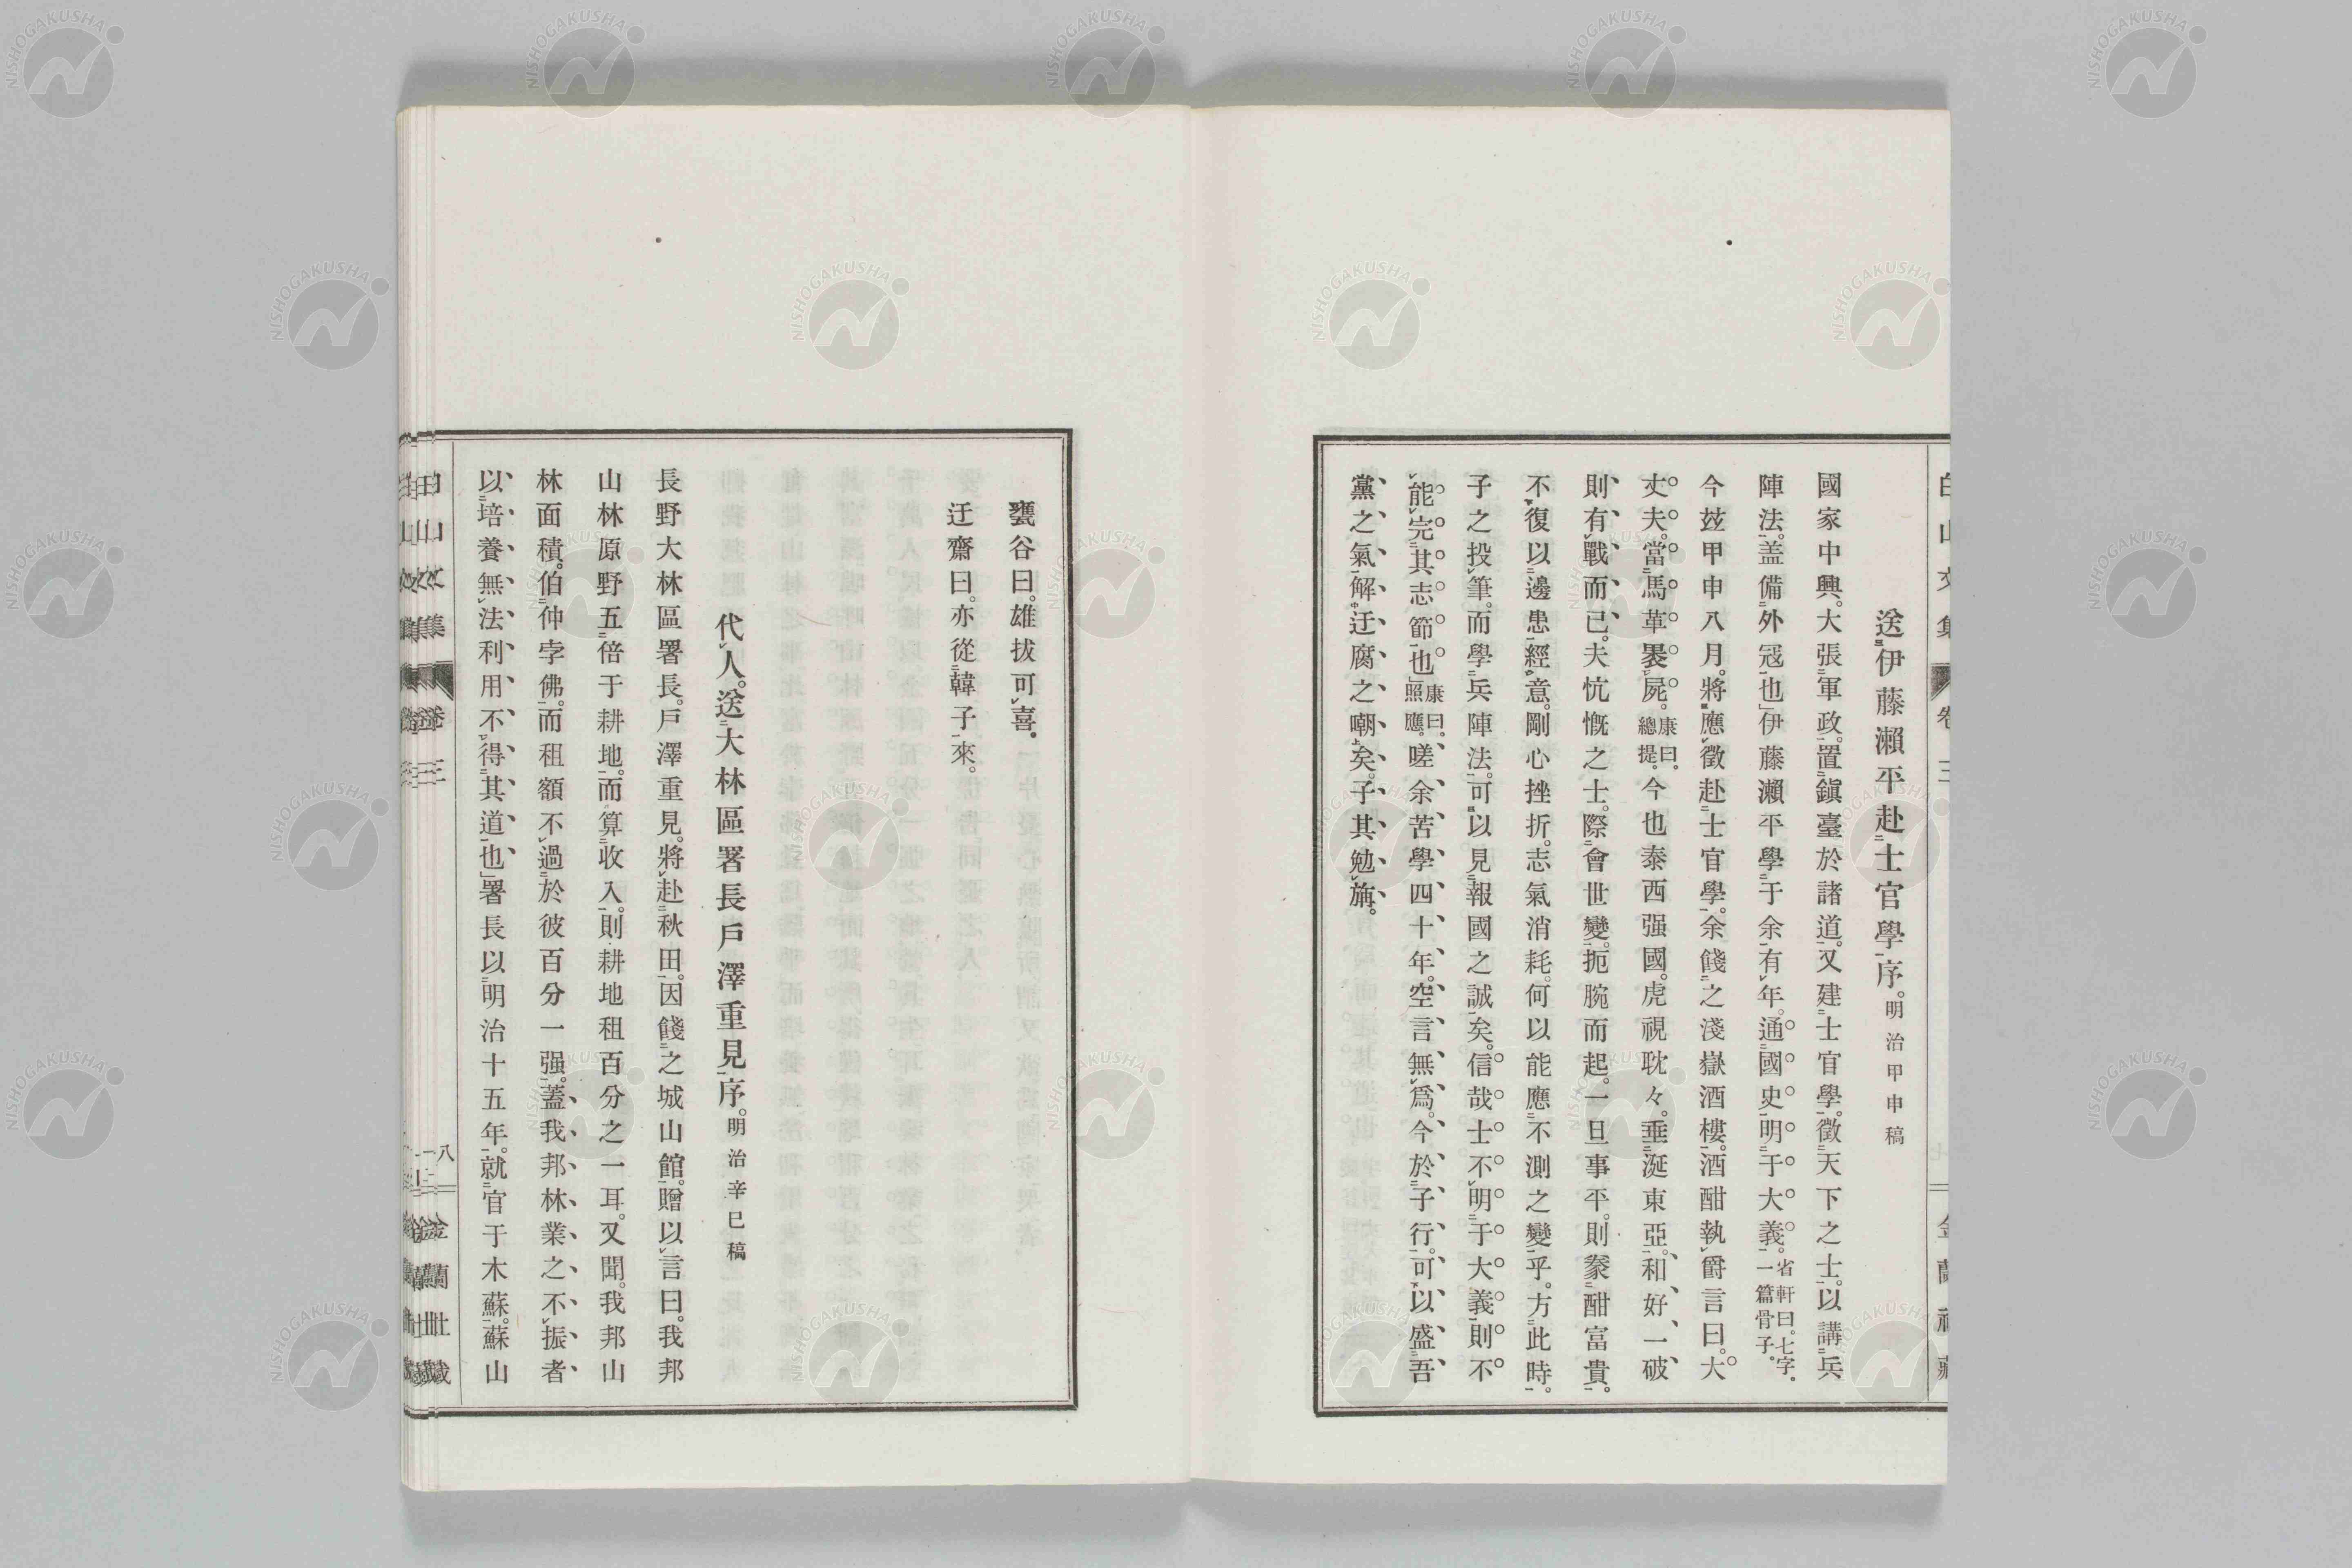 送伊藤瀨平赴士官學序。明治甲申稿
國家中興。大張軍政。置鎭臺於諸道。又建士官學。徵天下之士。以講兵
陣法。盖備外冦也」伊藤瀨平學于余有年。通國史。明于大義。省軒曰。七字。一篇骨子。
今玆甲申八月。將應徵赴士官學。余餞之淺嶽酒樓。酒酣執爵言曰。大
丈夫。當馬革裹屍。康曰。總提。今也泰西强國。虎視耽々。垂涎東亞。和好一破
則有戰而已。夫忼慨之士。際會世變。扼腕而起。一旦事平。則豢酣富貴。
不復以邊患經意。剛心挫折。志氣消耗。何以能應不測之變乎。方此時。
子之投筆。而學兵陣法。可以見報國之誠矣。信哉士不明于大義。則不
能完其志節也」康曰。照應。嗟余苦學四十年。空言無爲。今於子行。可以盛吾
黨之氣。解迂腐之嘲矣。子其勉旃。
白山文集 卷三 七 金蘭社藏
甕谷曰。雄拔可喜。
迂齋曰。亦從韓子來。
代人。送大林區署長戶澤重見序。明治辛巳稿
長野大林區署長。戶澤重見。將赴秋田。因餞之城山館。贈以言曰。我邦
山林原野五倍于耕地。而算收入。則耕地租百分之一耳。又聞。我邦山
林面積。伯仲孛佛。而租額不過於彼百分一强。蓋我邦林業之不振者
以培養無法利用不得其道也」署長以明治十五年。就官于木蘇。蘇山
白山文集 卷三 八 金蘭社藏
NISHOGAKUSHA